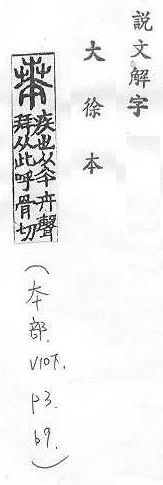 說文解字
大徐本
𠦪
疾也从夲卉聲
拜从此呼骨切
(本部.
V10下.
P3.
b9.)